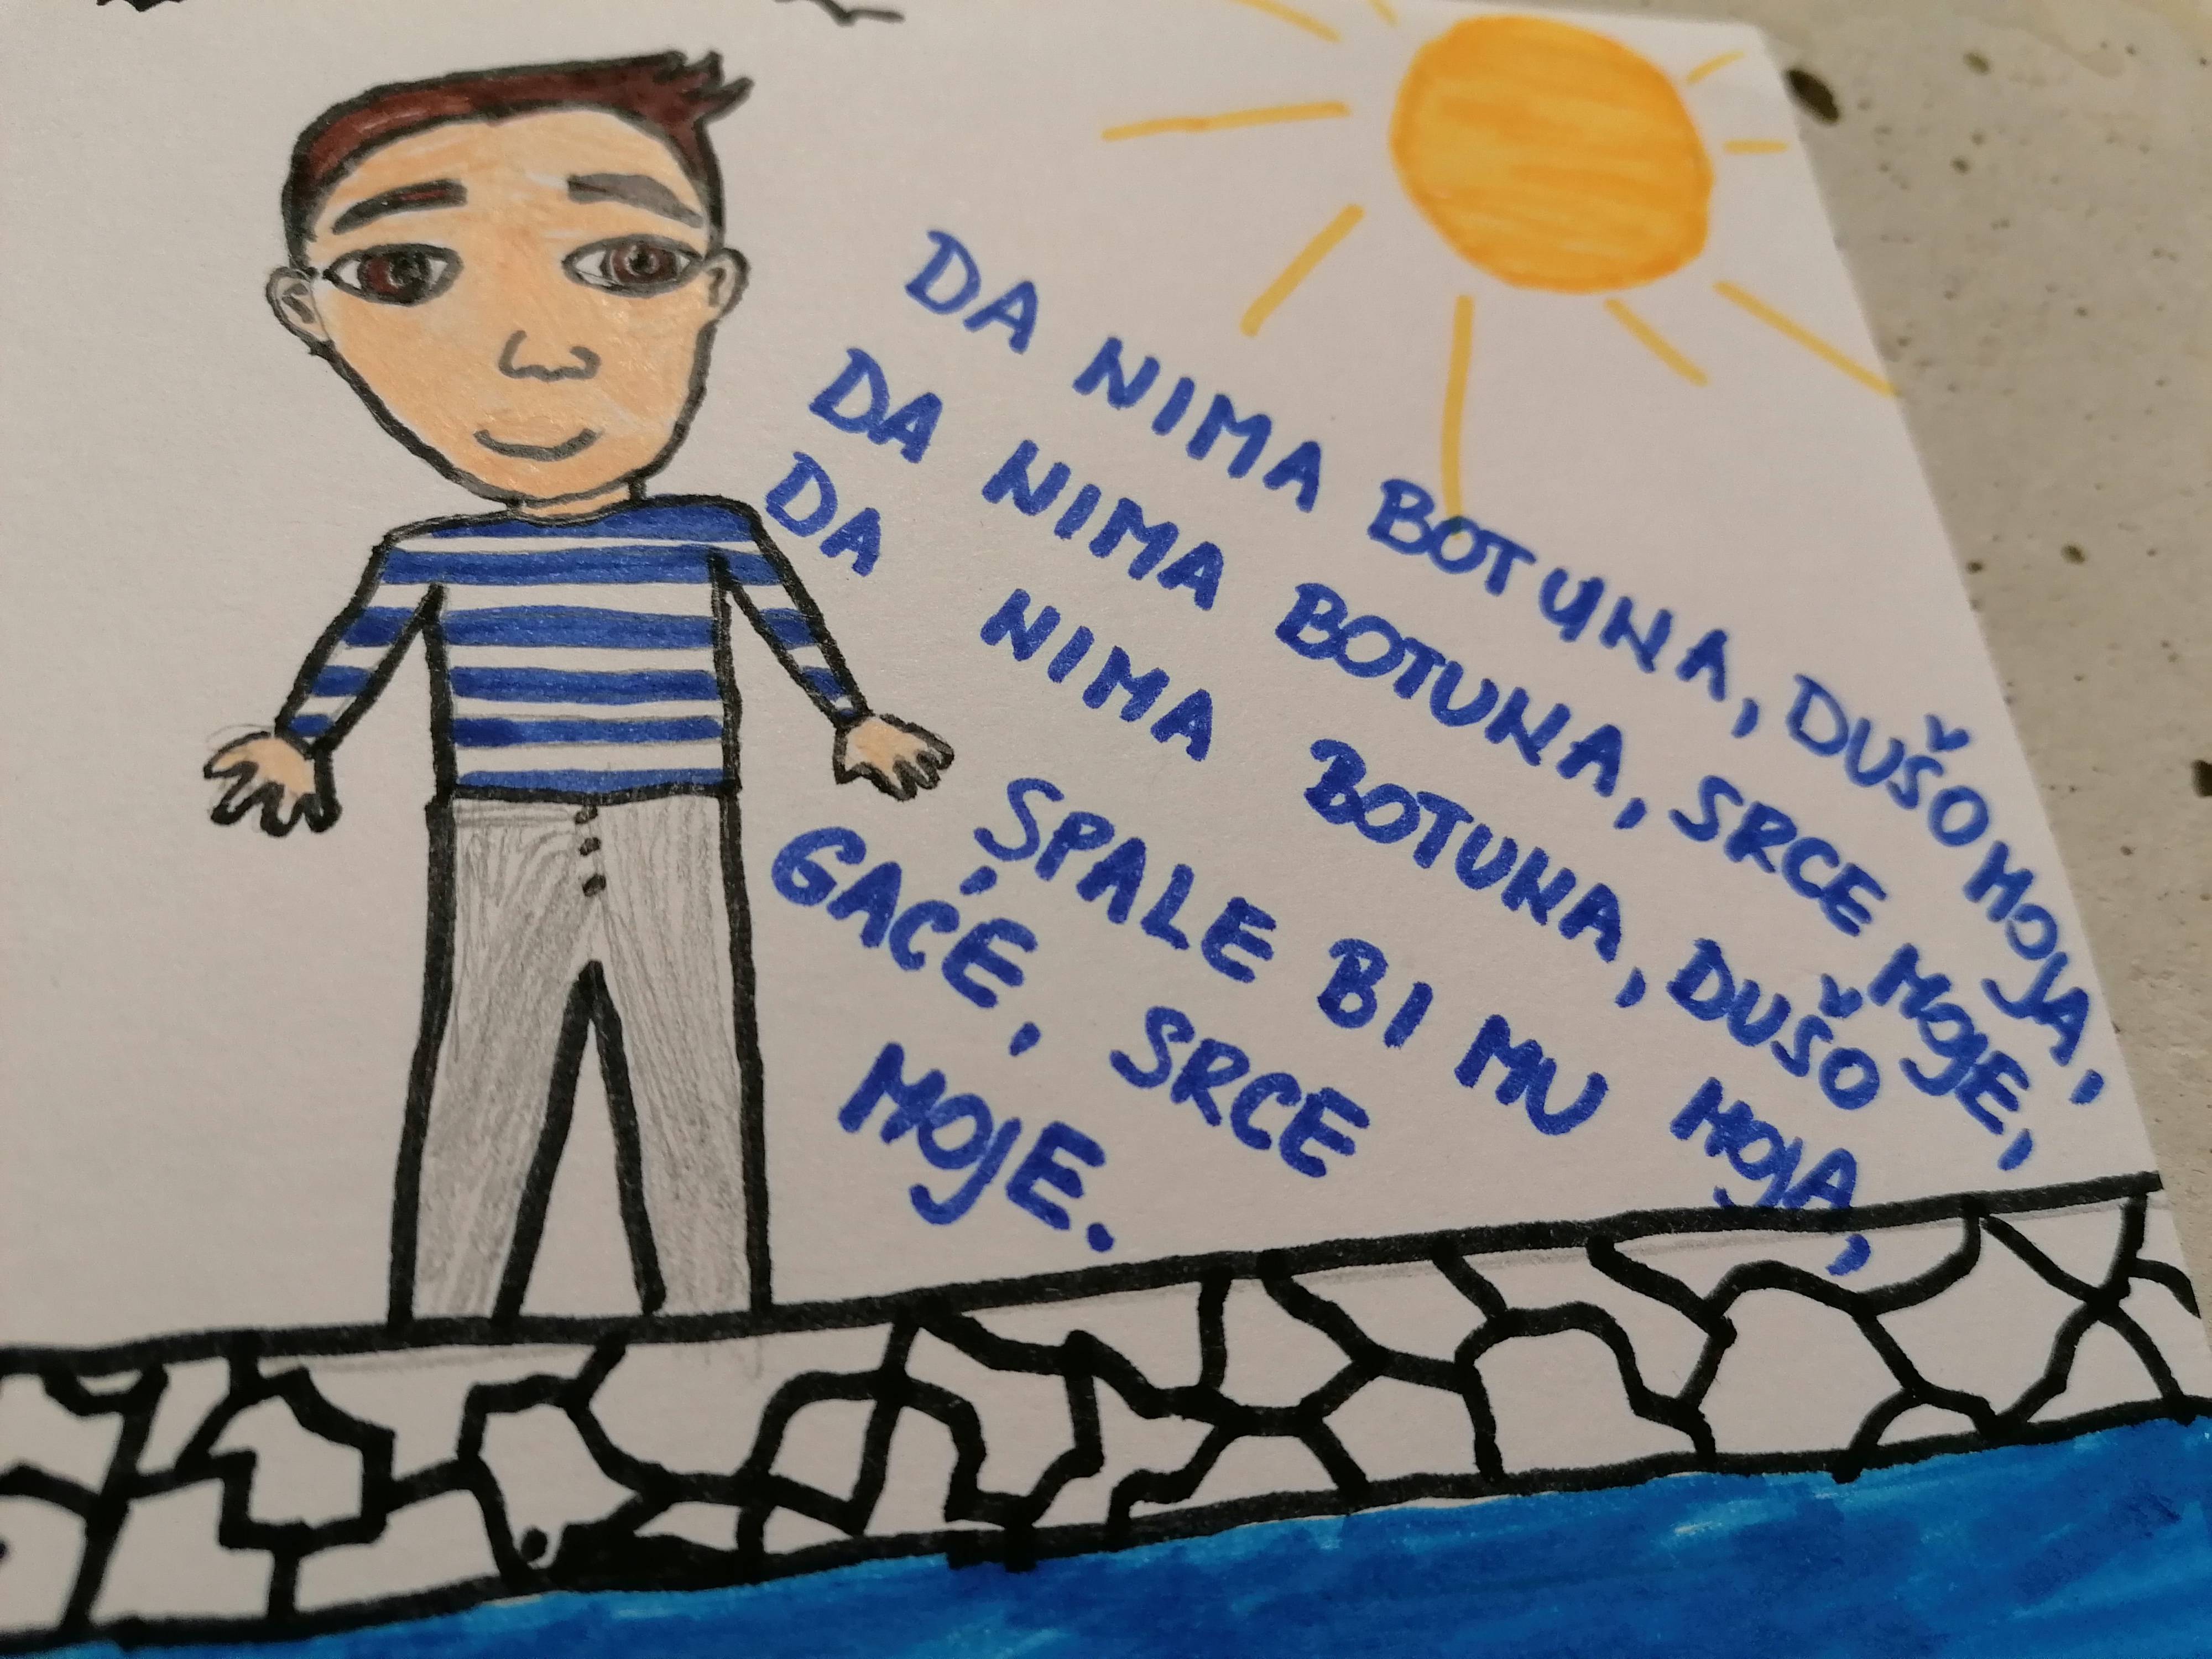 DA NIMA BOTUNA, DUŠO MOJA,
DA NIMA BOTUNA, SRCE MOJE,
DA NIMA BOTUNA, DUŠO MOJA,
SPALE BI MU
GAĆE, SRCE
MOJE.